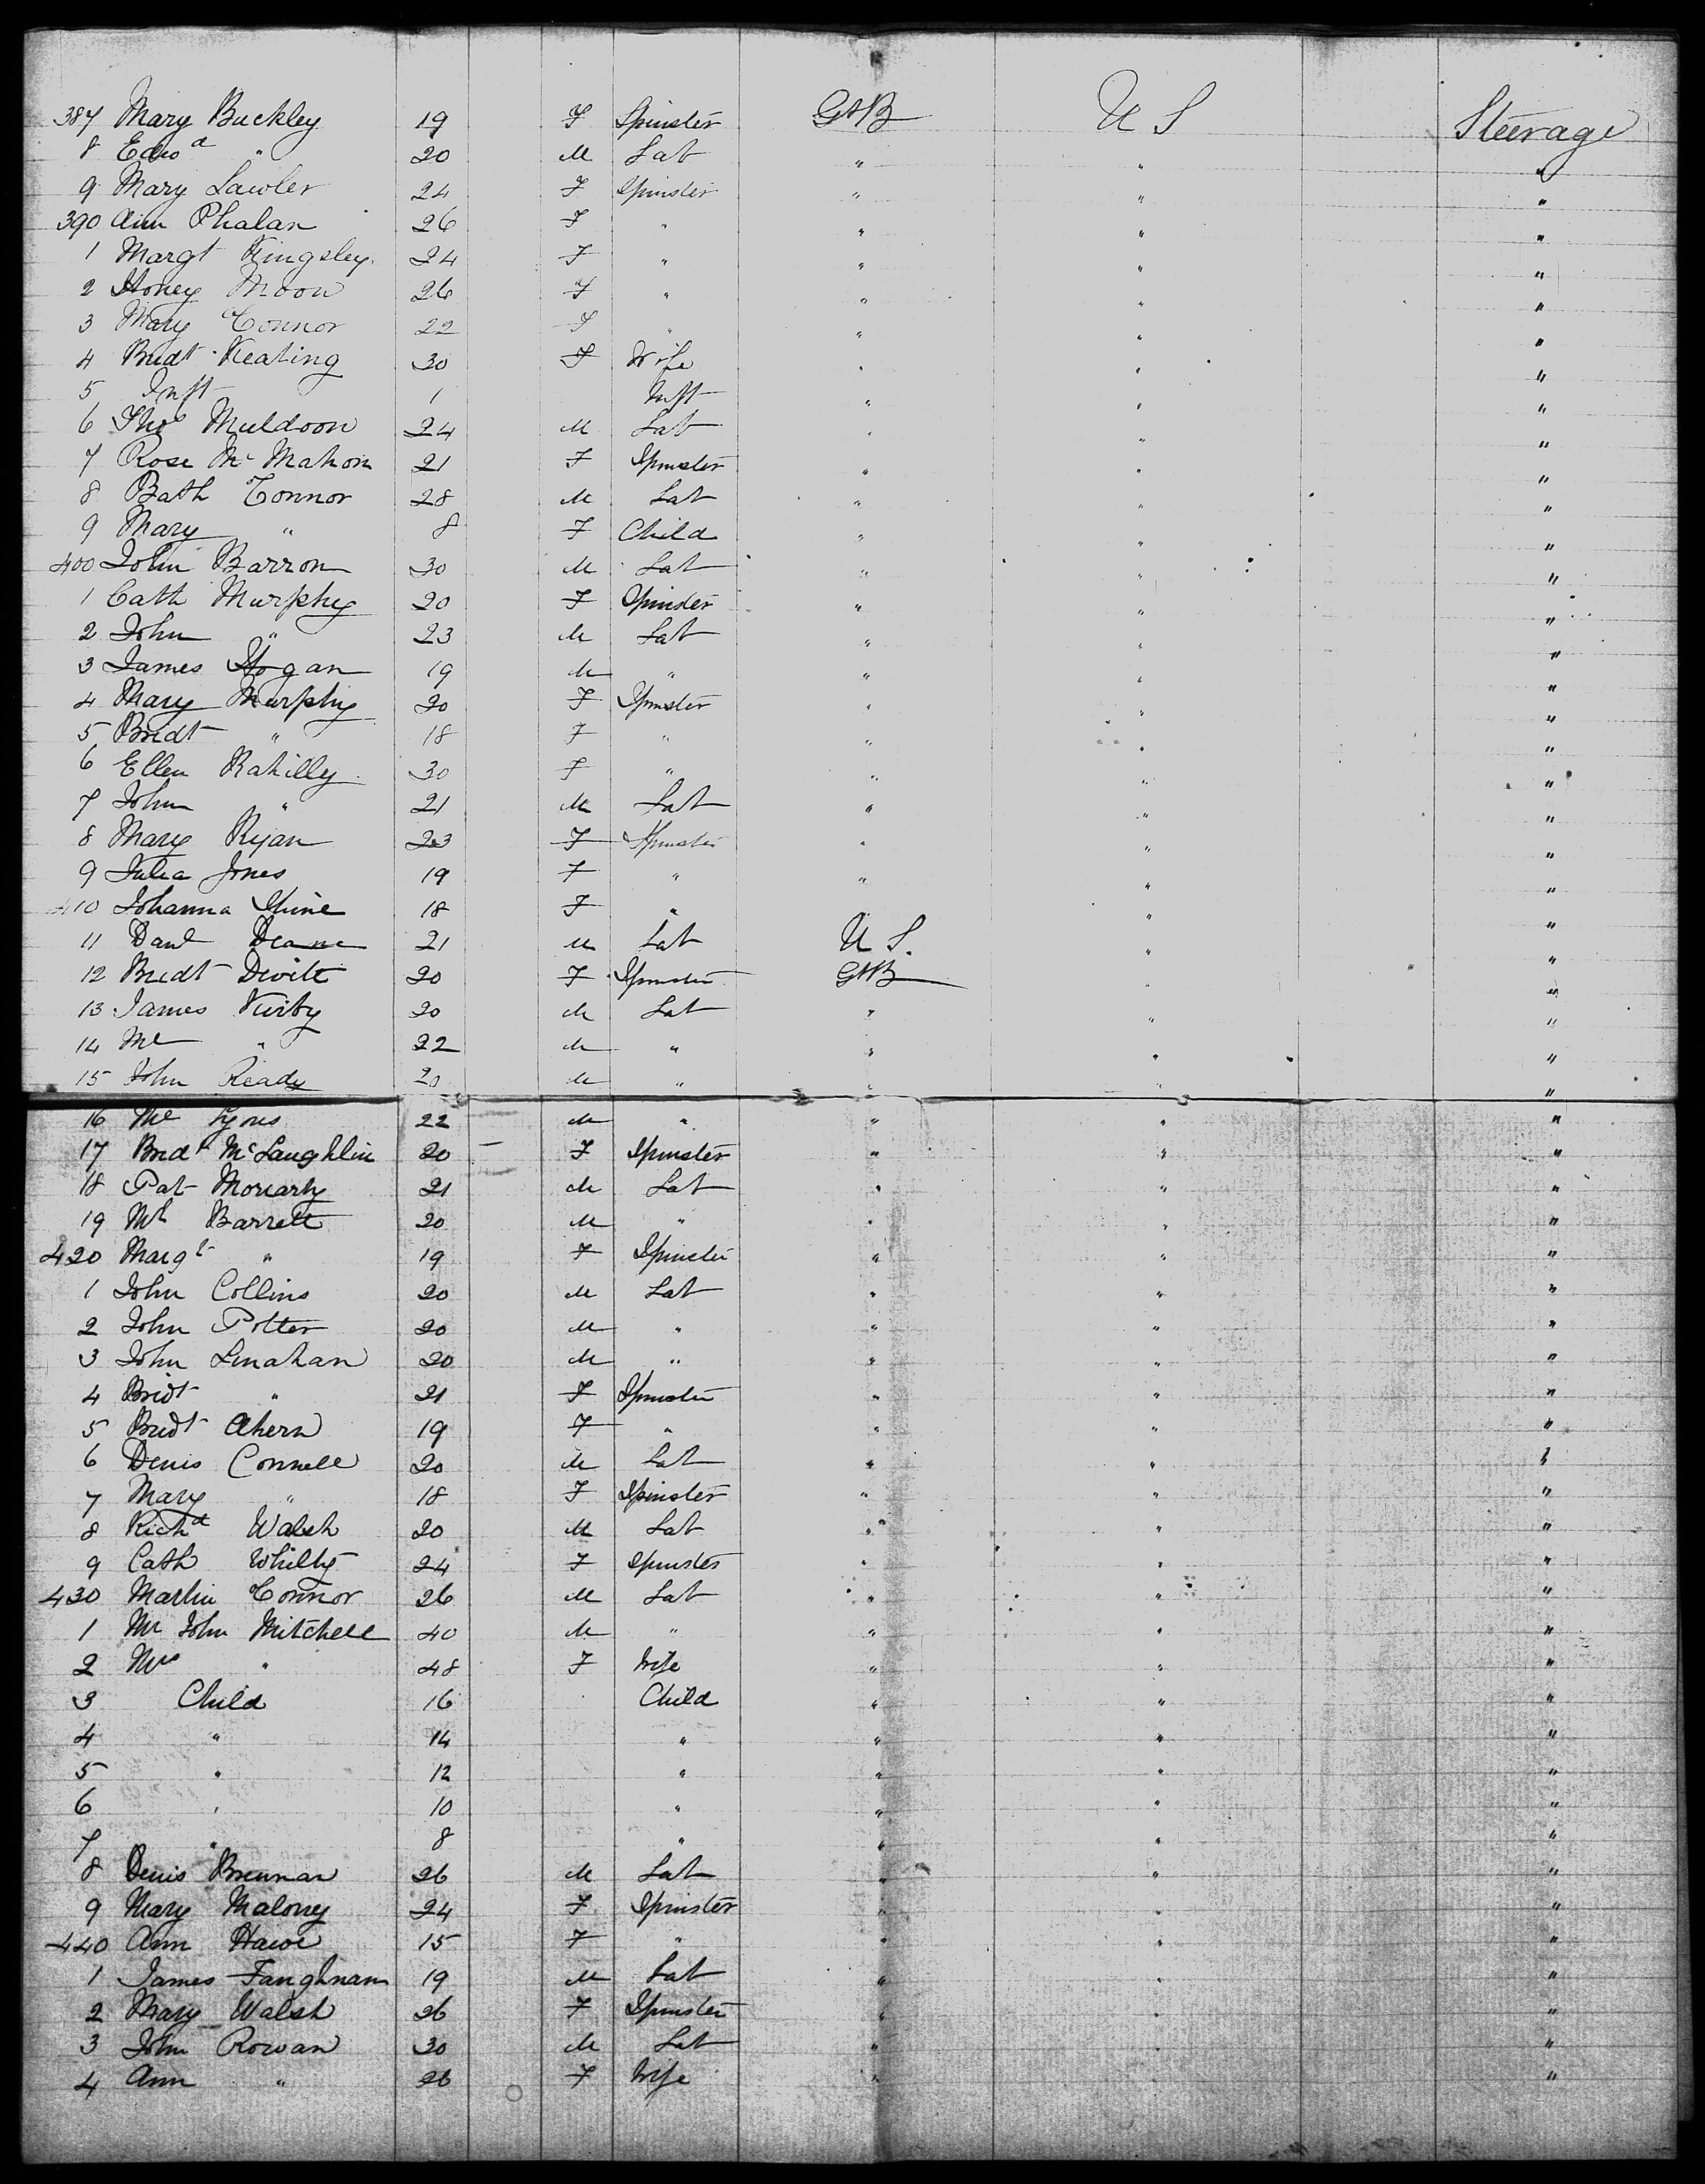 387 Mary Buckley 19 F Spinster GtB U S Steerage
8 Edwd " 20 M Lab " " "
9 Mary Lawler 24 F Spinster " " "
390 Ann Phalan 26 F " " " "
1 Margt Kingsley 24 F " " " "
2 Honey Moon 26 F " " " "
3 Mary Connor 22 F " " " "
4 Bridt Keating 30 F Wife " " "
5 Inft 1 Inft " " "
6 Thos Muldoon 24 M Lab " " "
7 Rose McMahon 21 F Spinster " " "
8 Bath Connor 28 M Lab " " "
9 Mary " 8 F Child " " "
400 John Barron 30 M Lab " " "
1 Cath Murphy 20 F Spinster " " "
2 John " 23 M Lab " " "
3 James Hogan 19 M " " " "
4 Mary Murphy 20 F Spinster " " "
5 Bridt " 18 F " " " "
6 Ellen Rahilly 30 F " " " "
7 John " 21 M Lab " " "
8 Mary Ryan 23 F Spinster " " "
9 Julia Jones 19 F " " " "
410 Johanna Shine 18 F " " " "
11 Danl Deane 21 M Lab U S. " "
12 Bridt Devitt 20 F Spinster GtB " "
13 James Kirby 20 M Lab " " "
14 Ml " 22 M " " " "
15 John Ready 20 M " " " "
16 Ml Lyons 22 M " " " "
17 Bridt McLaughlin 20 F Spinster " " "
18 Pat Moriarty 21 M Lab " " "
19 Ml Barrett 20 M " " " "
420 Margt " 19 F Spinster " " "
1 John Collins 20 M Lab " " "
2 John Potter 20 M " " " "
3 John Linahan 20 M " " " "
4 Bridt " 21 F Spinster " " "
5 Bridt Ahern 19 F " " " "
6 Denis Connell 20 M Lab " " "
7 Mary " 18 F Spinster " " "
8 Richd Walsh 20 M Lab " " "
9 Cath Whilty 24 F Spinster " " "
430 Martin Connor 26 M Lab " " "
1 Mr John Mitchell 40 M " " " "
2 Mrs " 48 F Wife " " "
3 Child 16 Child " " "
4 " 14 " " " "
5 " 12 " " " "
6 " 10 " " " "
7 " 8 " " " "
8 Denis Brennan 26 M Lab " " "
9 Mary Maloney 24 F Spinster " " "
440 Ann Hawe 15 F " " " "
1 James Faughnam 19 M Lab " " "
2 Mary Walsh 26 F Spinster " " "
3 John Rowan 30 M Lab " " "
4 Ann " 26 F Wife " " "